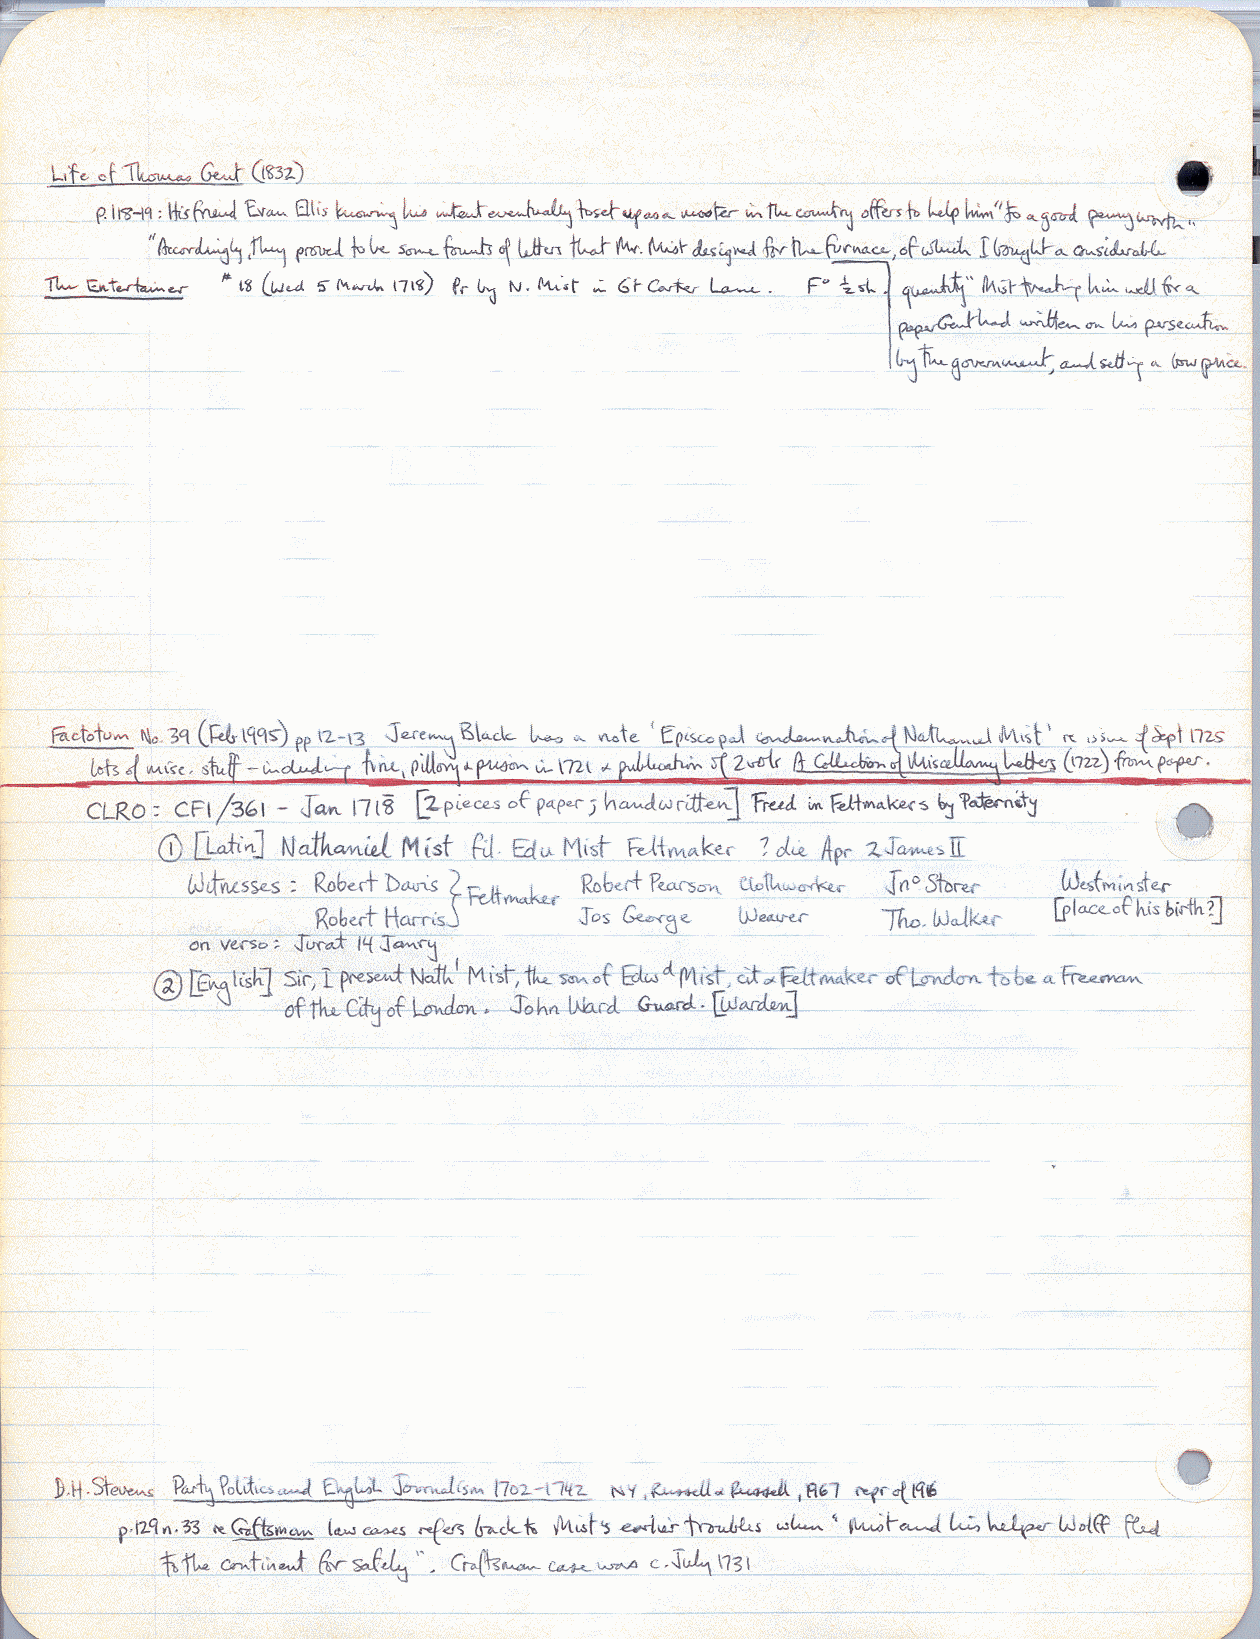 Life of Thomas Gent (1832)
p.118-19: His friend Evan Ellis knowing his intent eventually to set up as a master in the country offers to help him "to a good pennyworth".
"Accordingly, they proved to be some founts of letters that Mr. Mist designed for the furnace, of which I bought a considerable
quantity" Mist treating him well for a
paper Gent had written on his persecution
by the government, and setting a low price.
The Entertainer # 18 (Wed 5 March 1718) Pr by N. Mist in Gt Carter Lane. F° ½ sh.
Factotum No. 39 (Feb 1995) pp 12-13 Jeremy Black has a note 'Episcopal condemnation of Nathaniel Mist' re issue of Sept 1725
lots of misc. stuff - including fine, pillory & prison in 1721 & publication of 2 vols A Collection of Miscellany Letters (1722) from paper.
CLRO: CF1/361 - Jan 1718 [2 pieces of paper; handwritten] Freed in Feltmakers by Paternity
① [Latin] Nathaniel Mist fil. Edu Mist Feltmaker ? die Apr 2 James II
Witnesses: Robert Davis } Feltmaker Robert Pearson Clothworker Jno Storer Westminster
Robert Harris } Jos George Weaver Tho. Walker [place of his birth?]
on verso: Jurat 14 Janry
② [English] Sir, I present Nathl Mist, the son of Edwd Mist, cit & Feltmaker of London to be a Freeman
of the City of London. John Ward Guard. [Warden]
D.H. Stevens Party Politics and English Journalism 1702-1742 NY, Russell & Russell, 1967 repr of 1916
p.129 n.33 re Craftsman law cases refers back to Mist's earlier troubles when "Mist and his helper Wolff fled
to the continent for safety". Craftsman case was c. July 1731